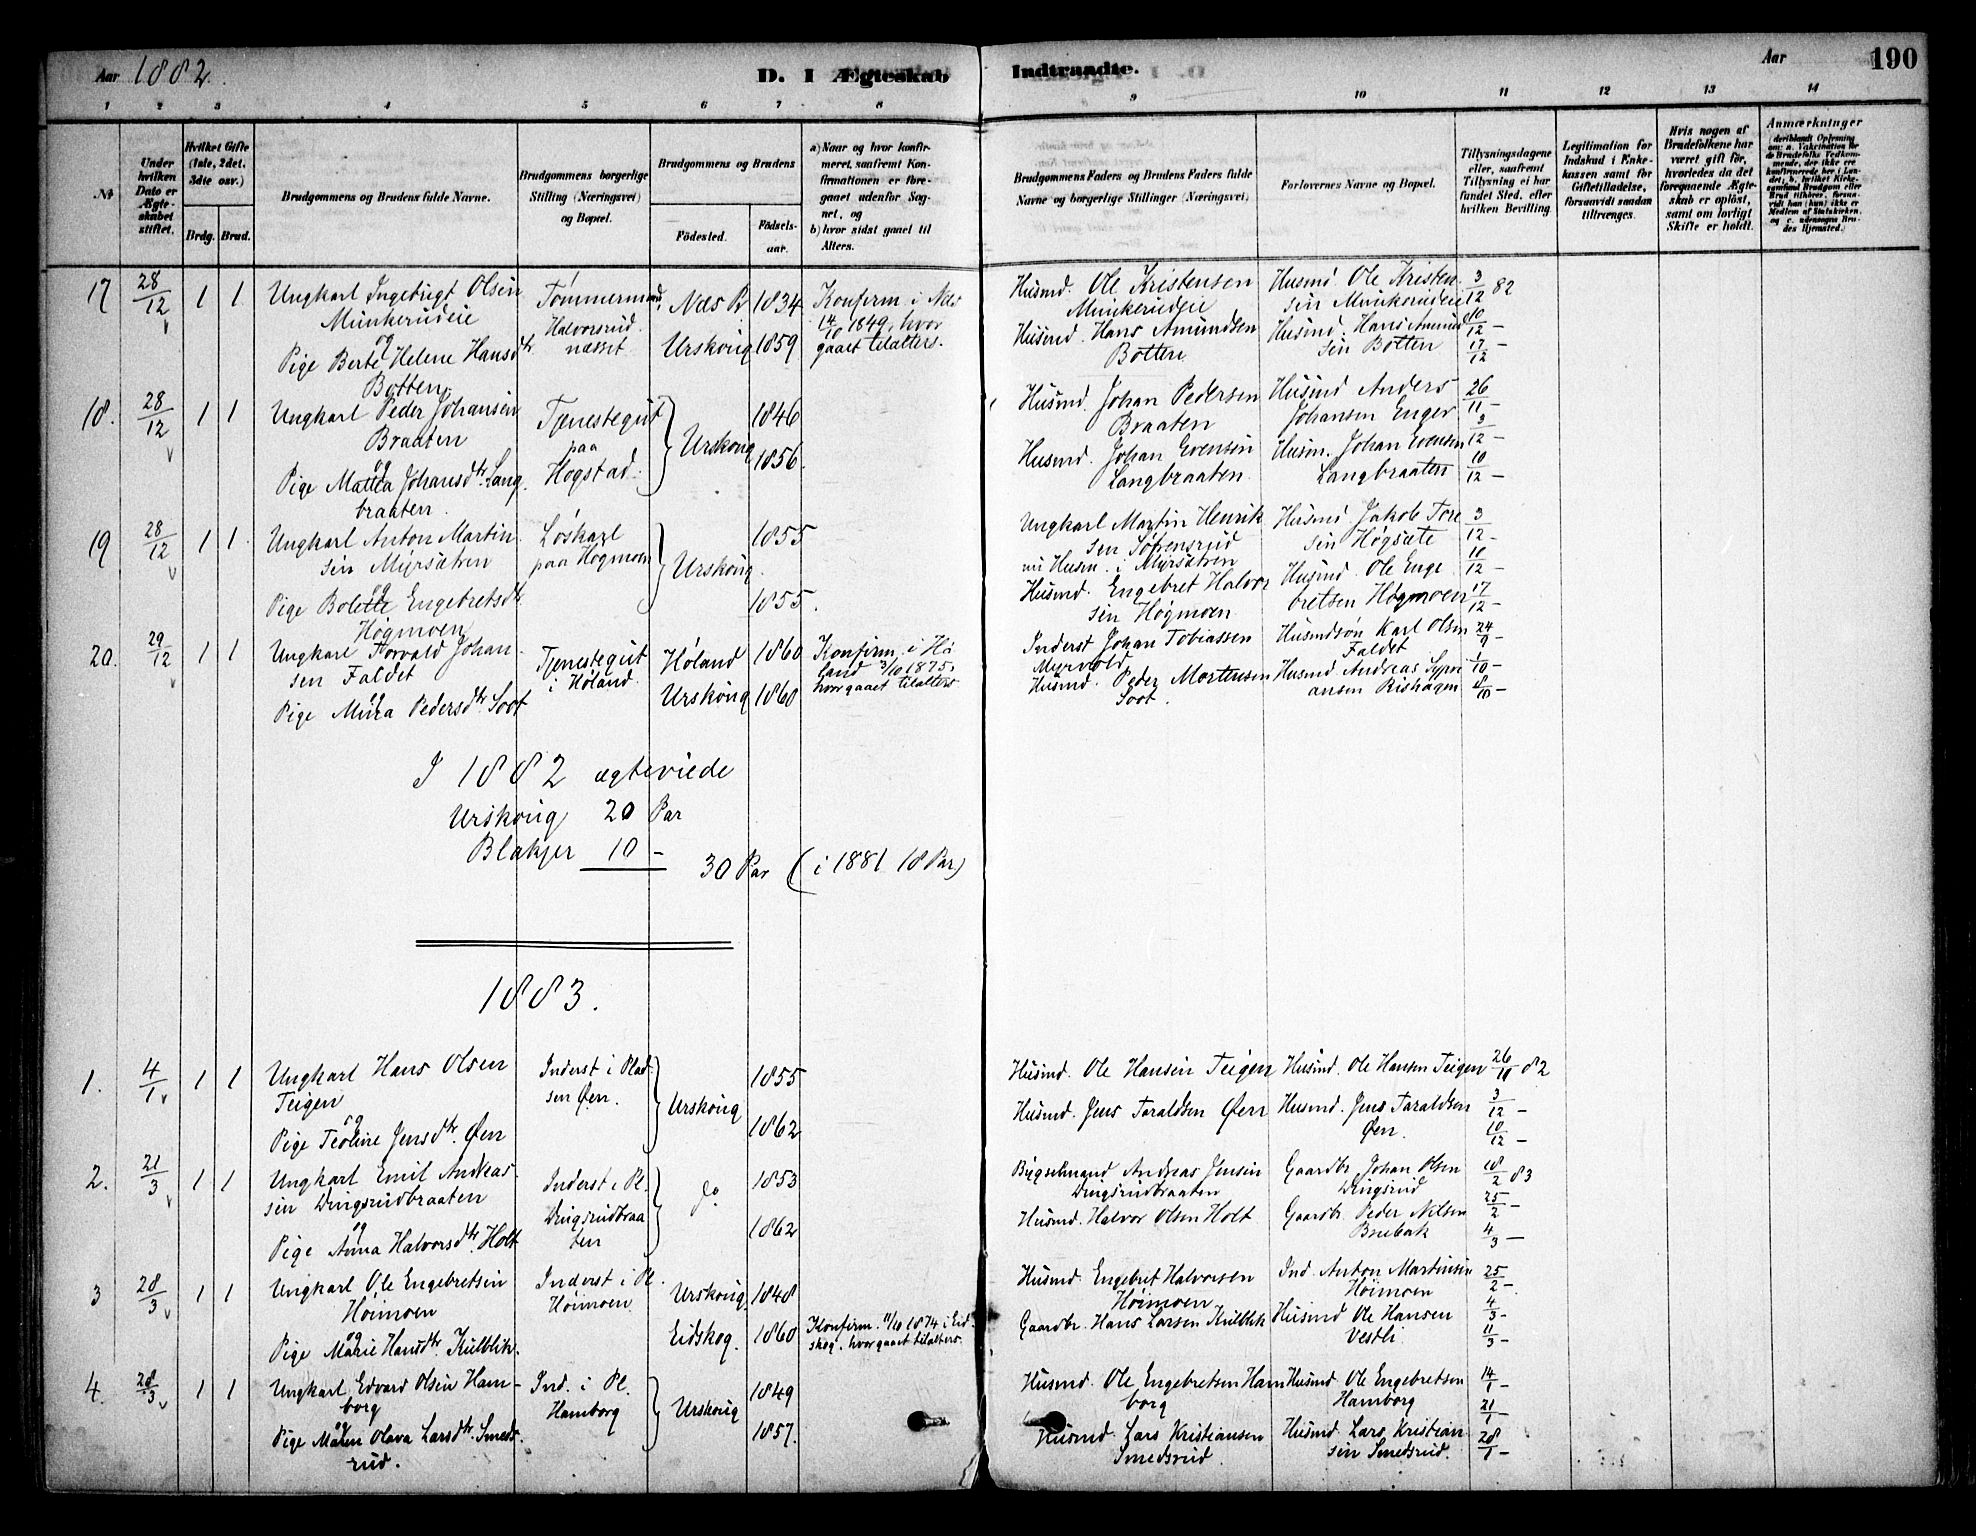 Aar 1882.
D. I Ægteskab
Indtraadte.
Aar
190
1 2 3 4 5 6 7 8
9 10 11 12 13 14
№
Under hvilken Dato er Ægteskabet stiftet.
Hvilket Gifte (1ste, 2det, 3dte osv.)
Brdg. Brud.
Brudgommens og Brudens fulde Navne.
Brudgommens borgerlige Stilling (Næringsvei) og Bopæl.
Brudgommens og Brudens
Fødested.
Fødselsaar.
a) Naar og hvor konfirmeret, saafremt Konfirmationen er foregaaet udenfor Sognet, og
b) hvor sidst gaaet til Alters.
Brudgommens Faders og Brudens Faders fulde Navne og borgerlige Stillinger (Næringsvei)
Forlovernes Navne og Bopæl.
Tillysningsdagene eller, saafremt Tillysning ei har fundet Sted, efter hvilken Bevilling.
Legitimation for Indskud i Enkekassen samt for Giftetilladelse, forsaavidt saadan tiltrænges.
Hvis nogen af Brudefolkene har været gift før, hvorledes da det foregaaende Ægteskab er opløst, samt om lovligt Skifte er holdt.
Anmærkninger
17 28/12 1 1 Ungkarl Ingebrigt Olsen Tømmermand Næs Pr 1834 Konfirm. i Næs
Munkerudeie Halvorsrud 14/10 1849, hvor
og næsset gaaet tilalters.
Pige Berte Helene Hansdtr Urskoug 1859
Botten
Husmd. Ole Kristensen Husmd Ole Kristen 3/12 82
Munkerudeie sen Munkerudeie
Husmd. Hans Amundsen Husmd. Hans Amund 10/12 –
Botten sen Botten 17/12 –
18. 28/12 1 1 Ungkarl Peder Johansen Tjenestegut Urskoug 1846
Braaten paa
og Hogstad. 1856.
Pige Mattea Johansdtr. Lang
braaten.
Husmd. Johan Pedersen Husmd Anders 26/11 –
Braaten Johansen Enger 3/12 –
Husmd. Johan Evensen Husm. Johan Evensen 10/12 –
Langbraaten. Langbraaten
19 28/12 1 1 Ungkarl Anton Martin Løskarl Urskoug. 1855
sen Myrsætren paa Hogmoen
og
Pige Bolette Engebretsdtr 1855.
Høgmoen
Ungkarl Martin Henrik Husmd Jakob Tore 3/12 –
sen Sørensrud sen Høgsæte
nu Husm. i Myrsætren 10/12 –
Husmd. Engebret Halvor Husmd. Ole Enge
sen Høgmoen bretsen Høgmoen 17/12 –
20. 29/12 1 1 Ungkarl Torvald Johan Tjenestegut Høland 1860 Konfirm. i Hø
sen Faldet i Høland. land 3/10 1875,
og hvor gaaet tilalters.
Pige Mina Pedersdtr Soot Urskoug 1860
Inderst Johan Tobiassen Husmdsøn Karl Olsen 24/9 –
Myrvold Faldet 1/10 –
Husmd. Peder Mortensen Husmd Andreas Sypri 8/10 –
Soot. ansen Rishagen
I 1882 ægteviede
Urskoug 20 Par
Blakjer 10 –
30 Par (i 1881 18 Par)
1883.
1. 4/1 1 1 Ungkarl Hans Olsen Inderst i Plad Urskoug 1855
Teigen sen Øen.
og
Pige Teoline Jensdtr. Øen 1862
Husmd. Ole Hansen Teigen Husmd. Ole Hansen Teigen 26/11 82
Husmd. Jens Taraldsen Øen Husmd. Jens Taraldsen 3/12 –
Øen. 10/12 –
2. 21/3 1 1 Ungkarl Emil Andreas Inderst i Pl. do 1853
sen Dingsrudbraaten Dingsrudbraa
og ten
Pige Anna Halvorsdtr. Holt 1862
Bygselmand Andreas Jensen Gaardbr. Johan Olsen 18/2 83
Dingsrudbraaten Dingsrud
Husmd. Halvor Olsen Holt Gaardbr. Peder Nilsen 25/2 –
Brubak 4/3 –
3 28/3 1 1 Ungkarl Ole Engebretsen Inderst i Pl. Urskoug 1848
Høimoen Høimoen
og Konfirm. 11/10 1874 i Eid
Pige Marie Hansdtr. Kulblik. Eidskog. 1860 skog, hvor gaaet tilalters.
Husmd. Engebret Halvorsen Ind. Anton Martinsen 25/2 –
Høimoen Høimoen
Gaardbr. Hans Larsen Kulblik Husmd Ole Hansen 4/3 –
Vestli 11/3 –
4. 28/3 1 1 Ungkarl Edvard Olsen Ham– Ind. i Pl. Urskoug 1849
borg Hamborg
og
Pige Maren Olava Larsdtr. Smeds 1857.
rud.
Husmd. Ole Engebretsen Ham Husmd Ole Engebretsen 14/1 –
borg Hamborg 21/1 –
Husmd. Lars Kristiansen Husmd. Lars Kristian 28/1 –
Smedsrud. sen Smedsrud.